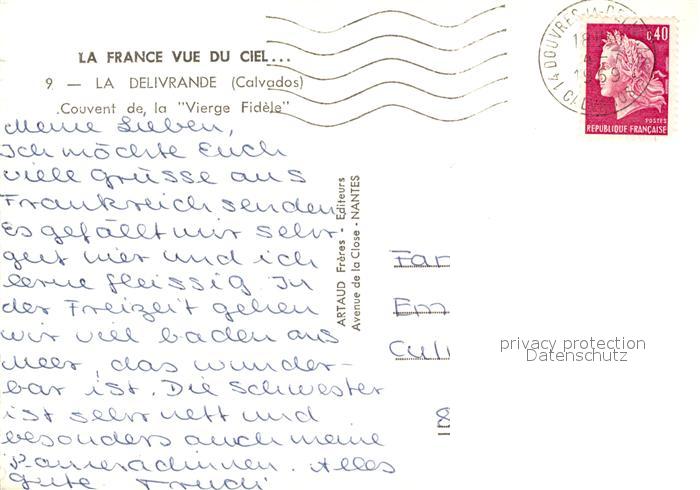 LA FRANCE VUE DU CIEL...
9 — LA DELIVRANDE (Calvados)
Couvent de la "Vierge Fidèle"
0,40
POSTES
REPUBLIQUE FRANÇAISE
Meine Lieben,
Ich möchte Euch
viele Grüsse aus
Frankreich senden
Es gefällt mir sehr
gut hier und ich
lerne fleissig. In
der Freizeit gehen
wir viel baden ans
Meer, das wunder-
bar ist. Die Schwester
ist sehr nett und
besonders auch meine
Kameradinnen. Alles
Gute Trudi
ARTAUD Frères - Editeurs
Avenue de la Close - NANTES
Fam
Em
Culm
8
privacy protection
Datenschutz